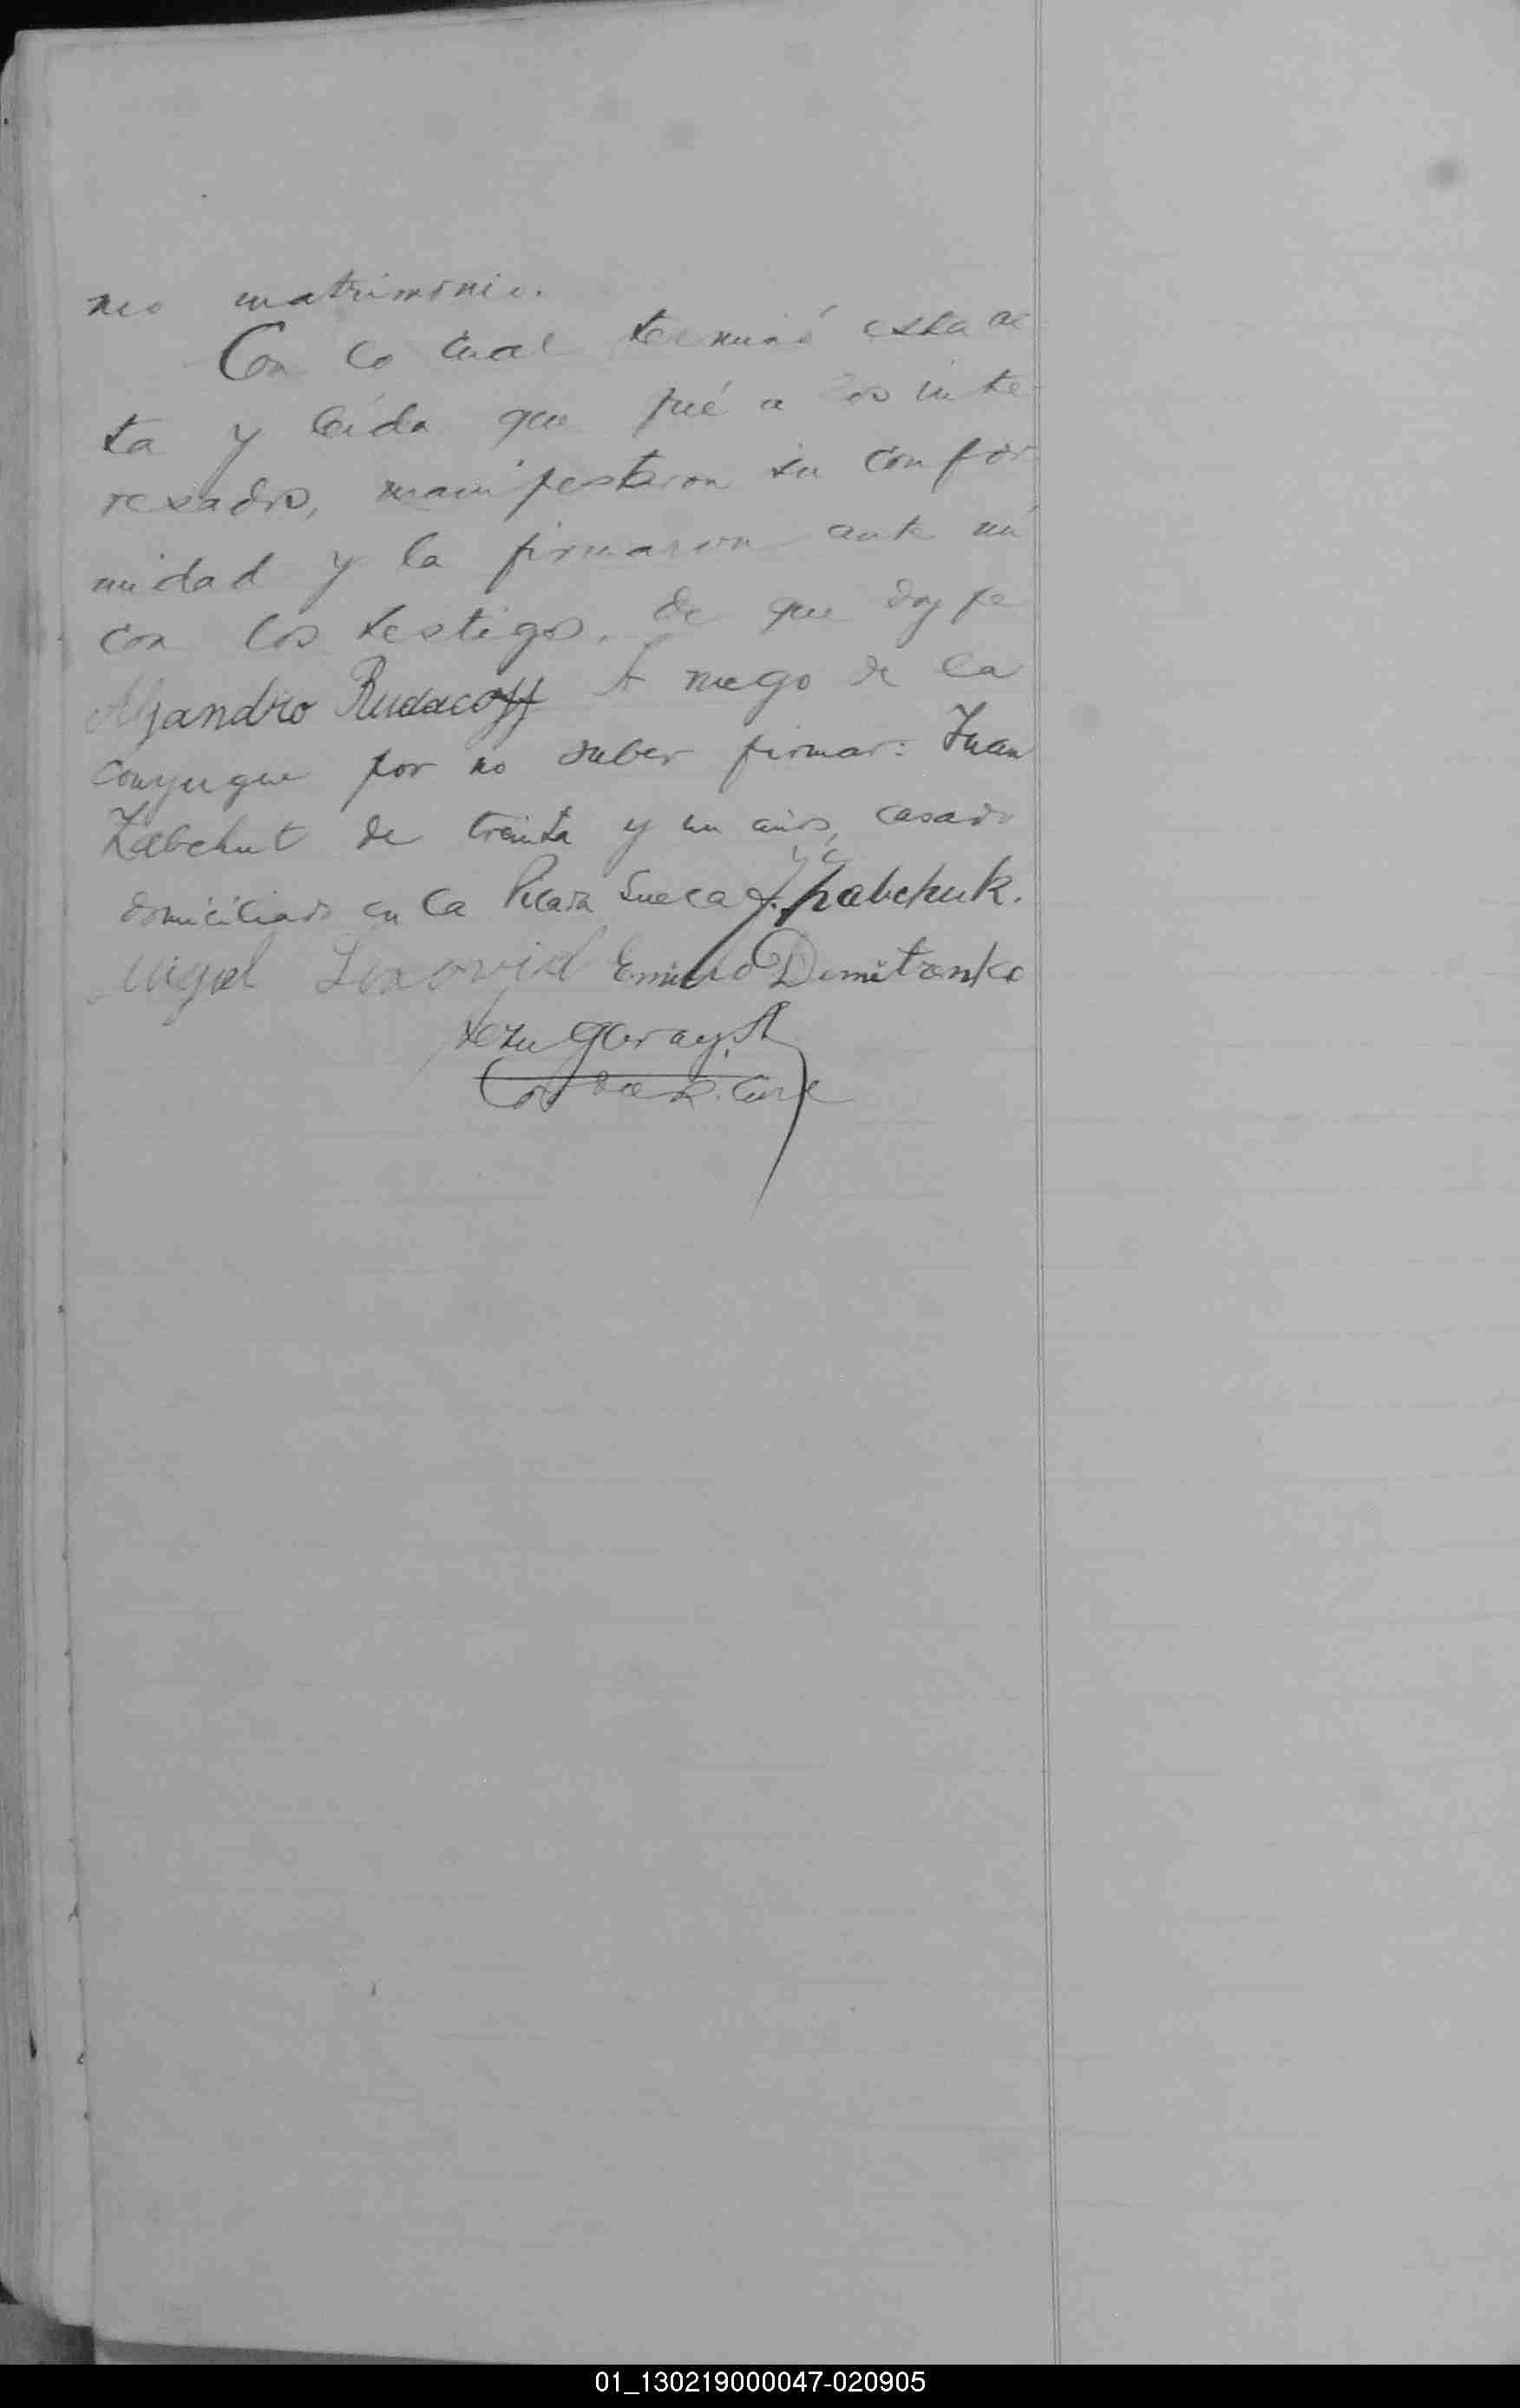 neo matrimonio.
Con lo cual terminó esta ac
ta y leída que fué a los inte
resados, manifestaron su confor
midad y la firmaron ante mí
con los testigos, de que doy fe
Alejandro Rudacoff A ruego de la
conyugue por no saber firmar: Juan
Zabchut de treinta y un años, casado
domiciliado en la Picada Sueca J. habchuk.
Miguel Emilio Demitrenko
Garay.
01_130219000047-020905